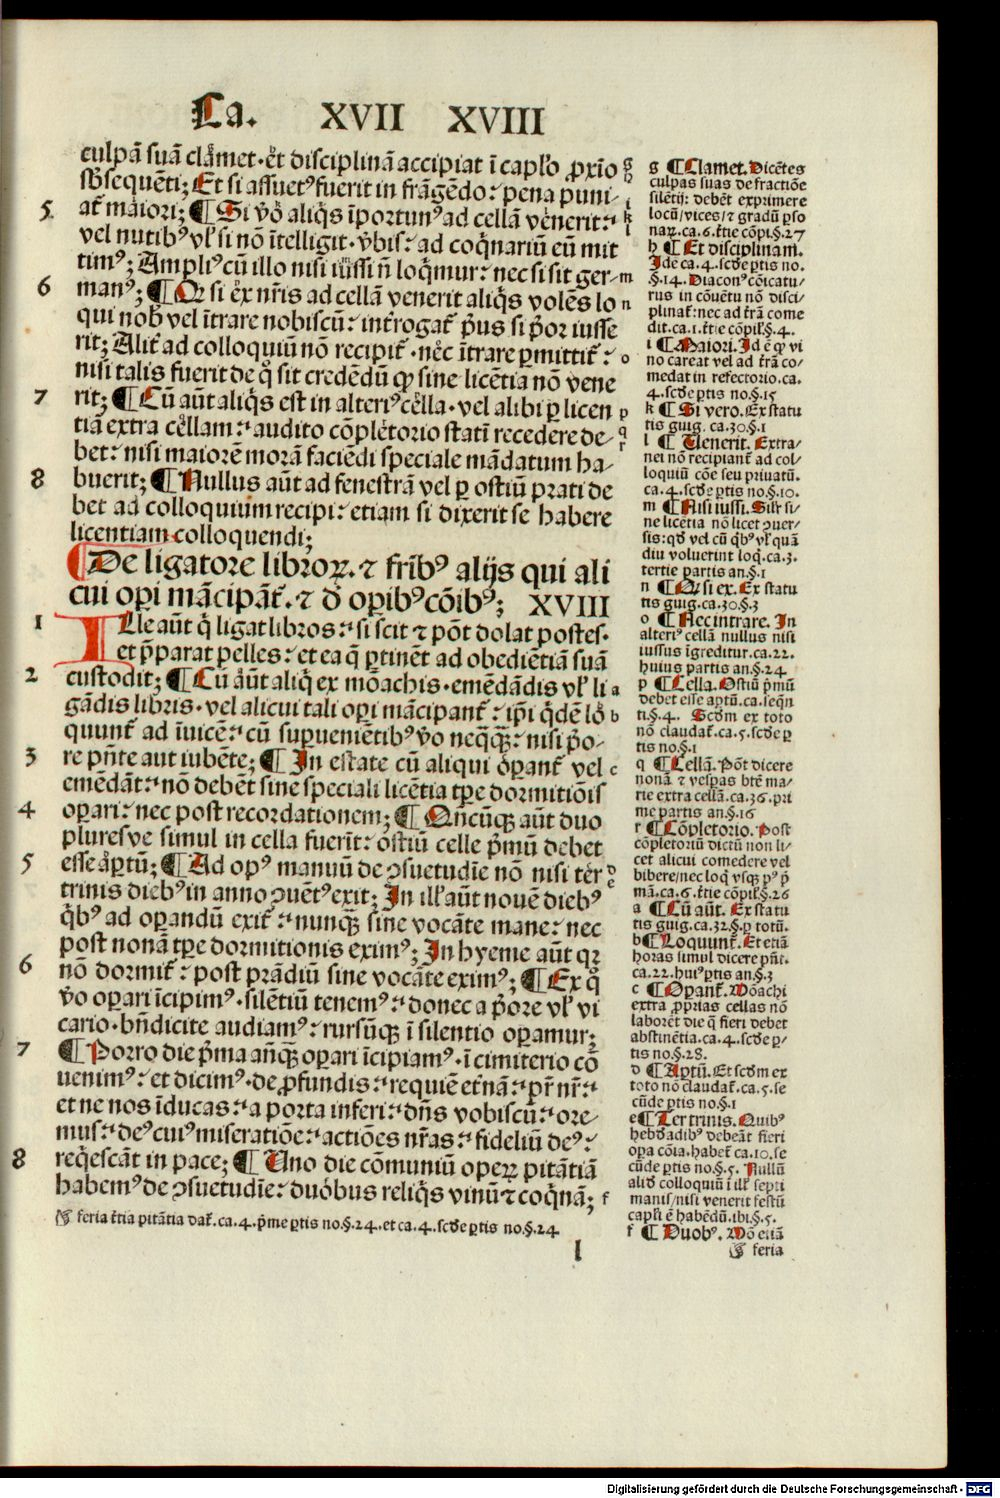 Ca. XVII XVIII
culpā suā clāmet·et disciplinā accipiat ī caplo ꝓxīo
sb̄sequēti; Et si assuetꝰ fuerit in frāgēdo: pena puni-
5 at̄ maiori; ¶ Si v̊o aliq̄s īportunꝰ ad cellā venerit:
vel nutibꝰ vl̄ si nō ītelligit·v̄bis: ad coq̄nariū eū mit
timꝰ; Ampliꝰ cū illo nisi iussi n̄ loq̄mur: nec si sit ger-
6 manꝰ; ¶ Qꝛ si ex nr̄is ad cellā venerit aliq̄s volēs lo
qui nob̄ vel ītrare nobiscū: int̄rogat̄ p̄us si p̄or iusse
rit; Alit̄ ad colloquiū nō recipit̄·nec ītrare ꝑmittit̄:
nisi talis fuerit de q̊ sit credēdū ꝙ sine licētia nō vene
7 rit; ¶ Cū aūt aliq̄s est in alteriꝰ cella·vel alibi ꝑ licen
tiā extra cellam: audito cōpletorio statī recedere de-
bet: nisi maiorē morā faciēdi speciale mādatum ha-
8 buerit; ¶ Nullus aūt ad fenestrā vel ꝑ ostiū prati de
bet ad colloquium recipi: etiam si dixerit se habere
licentiam colloquendi;
¶ De ligatore libroꝝ.⁊ fr̄ibꝰ alijs qui ali
cui oꝑi mācipāt̄.⁊ d̄ oꝑibꝰ cōibꝰ; XVIII
1 Ille aūt q̄ ligat libros: si scit ⁊ pōt dolat postes·
et p̄parat pelles: et ea q̄ ꝑtinēt ad obediētiā suā
2 custodit; ¶ Cū aūt aliq̄ ex mōachis·emēdādis vl̄ li
gādis libris·vel alicui tali oꝑi mācipant̄: ip̄i q̄dē lo
quunt̄ ad īuicē: cū suꝑuenietībꝰ v̊o neq̄q̄ꝫ: nisi p̄o-
3 re pn̄te aut iubēte; ¶ In estate cū aliqui oꝑant̄ vel
emēdāt: nō debēt sine speciali licētia tꝑe dormitiōis
4 oꝑari: nec post recordationem; ¶ Qn̄cūqꝫ aūt duo
pluresve simul in cella fuerīt: ostiū celle p̄mū debet
5 esse aꝑtū; ¶ Ad opꝰ manuū de ꝯsuetudīe nō nisi ter
trinis diebꝰ in anno ꝯuētꝰ exit; In ill̄ aūt nouē diebꝰ
q̄bꝰ ad oꝑandū exit̄: nunqꝫ sine vocāte mane: nec
post nonā tꝑe dormitionis eximꝰ; In hyeme aūt qꝛ
6 nō dormit̄: post prādiū sine vocāte eximꝰ; ¶ Ex q̊
v̊o oꝑari īcipimꝰ·silētiū tenemꝰ: donec a p̄ore vl̄ vi
cario·bn̄dicite audiamꝰ: rursūqꝫ ī silentio oꝑamur;
7 ¶ Porro die p̄ma añqꝫ oꝑari īcipiamꝰ·ī cimiterio cō
uenimꝰ: et dicimꝰ·de ꝓfundis: requiē et̄nā: pr̄ nr̄:
et ne nos īducas: a porta inferi: dn̄s vobiscū: ore-
mus: deꝰ cuiꝰ miseratiōe: actiōes nr̄as: fideliū deꝰ:
8 req̄escāt in pace; ¶ Uno die cōmuniū operꝝ pitātiā
habemꝰ de ꝯsuetudīe: duobus reliq̄s vinū ⁊ coq̄nā;
☞ feria t̄tia pitātia dat̄. ca.4. p̄me ꝑtis no.§.24. et ca.4. scd̄e ꝑtis no.§.24
l
g ¶ Clamet. Dicētes
culpas suas de fractiōe
silētij: debēt exprimere
locū/vices/⁊ gradū ꝑso
naꝝ. ca.6. t̄tie cōpi.§.27
h ¶ Et disciplinam.
Idē ca.4. scd̄e ꝑtis no.
§.14. Diaconꝰ cōicatu-
rus in cōuētu nō disci-
plinat̄: nec ad t̄rā come
dit. ca.1. t̄tie cōpil̄.§.4.
i ¶ Maiori. Id ē ꝙ vi
no careat vel ad t̄rā co-
medat in refectorio. ca.
4. scd̄e ꝑtis no.§.15
k ¶ Si vero. Ex statu
tis guig. ca.30.§.1
l ¶ Uenerit. Extra-
nei nō recipiant̄ ad col-
loquiū cōe seu priuatū.
ca.4. scd̄e ꝑtis no.§.10.
m ¶ Nisi iussi. Silr̄ si-
ne licētia nō licet ꝯuer-
sis: qd̄ vel cū q̄bꝰ vl̄ quā
diu voluerint loq̄. ca.3.
tertie partis an.§.1
n ¶ Qꝛ si ex. Ex statu
tis guig. ca.30.§.3
o ¶ Nec intrare. In
alteriꝰ cellā nullus nisi
iussus īgreditur. ca.22.
huius partis an.§.24
p ¶ Cella. Ostiū p̄mū
debet esse aꝑtū. ca. seqn̄
ti.§.4. Scd̄m ex toto
nō claudat̄. ca.5. scd̄e ꝑ
tis no.§.1
q ¶ Cellā. Pōt dicere
nonā ⁊ vesꝑas bt̄e ma-
rie extra cellā. ca.36. pri
me partis an.§.16
r ¶ Cōpletorio. Post
cōpletoriū dictū non li-
cet alicui comedere vel
bibere/nec loq̄ vsqꝫ pꝰ p̄
mā. ca.6. t̄tie cōpil̄.§.26
a ¶ Cū aūt. Ex statu
tis guig. ca.32.§. ꝑ totū.
b ¶ Loquunt̄. Et etiā
horas simul dicere pn̄t.
ca.22. huiꝰ ꝑtis an.§.3
c ¶ Oꝑant̄. Mōachi
extra ꝓprias cellas nō
laborēt die q̄ fieri debet
abstinētia. ca.4. scd̄e ꝑ-
tis no.§.28.
d ¶ Aꝑtū. Et scd̄m ex
toto nō claudat̄. ca.5. se
cūde ꝑtis no.§.1
e ¶ Ter trinis. Quibꝰ
hebd̄adibꝰ debeāt fieri
oꝑa cōia. habet̄ ca.10. se
cūde ꝑtis no.§.5. Nullū
aliud colloquiū ī ill̄ septi
manis/nisi venerit festū
capl̄i ē habēdū. ibi.§.5.
f ¶ Duobꝰ. Mō etiā
☞ feria
Digitalisierung gefördert durch die Deutsche Forschungsgemeinschaft · DFG